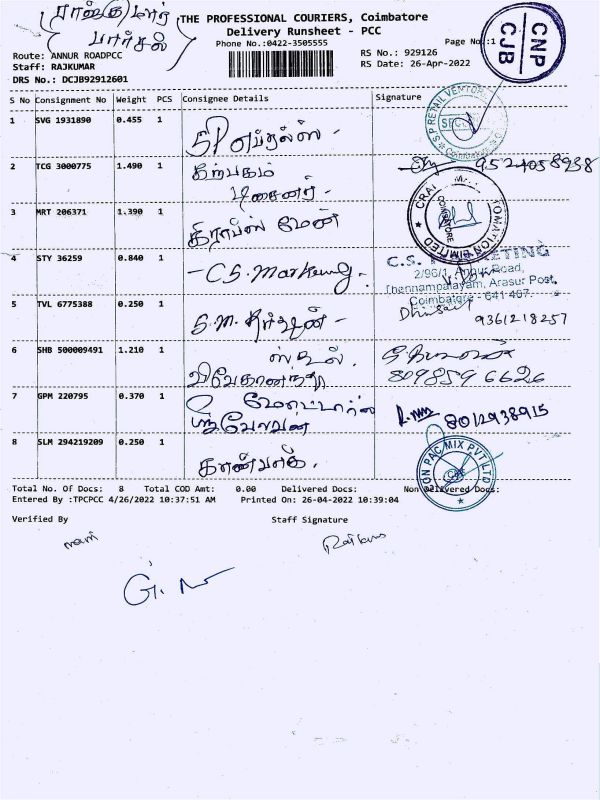 ராஜ்குமார்
பார்சல்
THE PROFESSIONAL COURIERS, Coimbatore
Delivery Runsheet - PCC
Phone No.:0422-3505555
Page No.:1
CNP
CJB
Route: ANNUR ROADPCC
RS No.: 929126
Staff: RAJKUMAR
RS Date: 26-Apr-2022
DRS No.: DCJB92912601
S No Consignment No Weight PCS Consignee Details Signature
1 SVG 1931890 0.455 1
2 TCG 3000775 1.490 1 கற்பகம்
டிசைனர் - 9524058938
3 MRT 206371 1.390 1 கிராப்ஸ் மேன்
4 STY 36259 0.840 1 - C.S. Marketing.
C.S. MARKETING
2/96/1, Annur Road,
Chennampalayam, Arasur Post,
Coimbatore - 641 407.
5 TVL 6775388 0.250 1 S.M.
9361218257
6 SHB 500009491 1.210 1 ஸ்கூல்.
விவேகானந்தா 8098596626
7 GPM 220795 0.370 1 மோட்டார்ஸ்
8012938915
8 SLM 294219209 0.250 1
Total No. Of Docs: 8 Total COD Amt: 0.00 Delivered Docs: Non Delivered Docs:
Entered By :TPCPCC 4/26/2022 10:37:51 AM Printed On: 26-04-2022 10:39:04
Verified By Staff Signature
mani